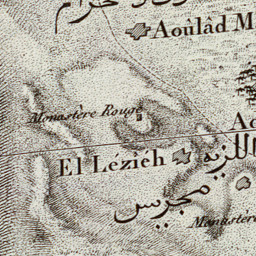 حرام
Aoûlâd M
Monastère Rouge
El Léziéh
اللزيه
مجريس
Monastère